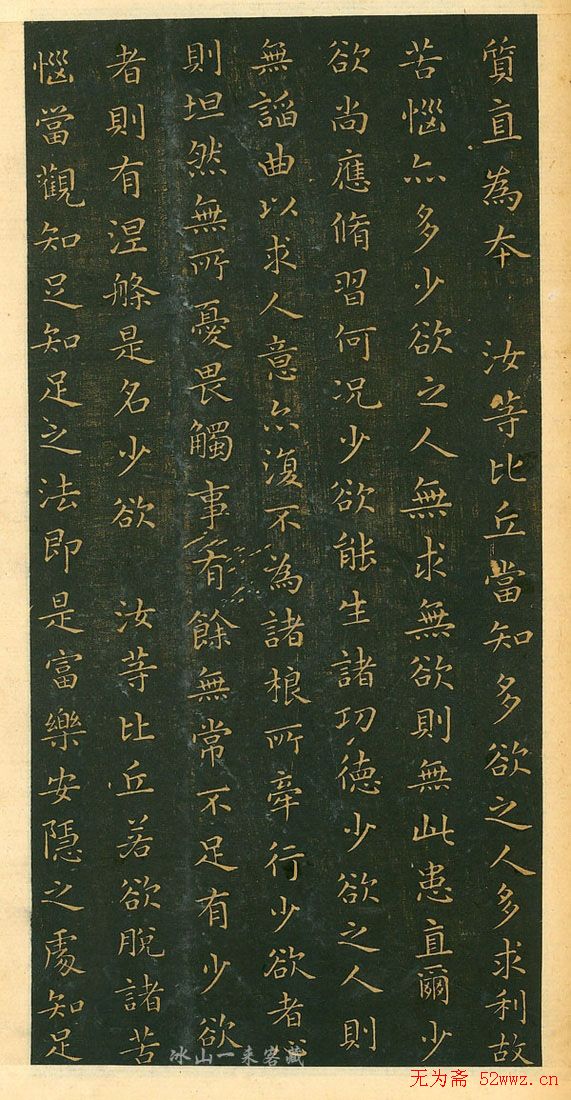 質直為本　汝等比丘當知多欲之人多求利故
苦惱亦多少欲之人無求無欲則無此患直爾少
欲尚應脩習何況少欲能生諸功德少欲之人則
無謟曲以求人意亦復不為諸根所牽行少欲者心
則坦然無所憂畏觸事有餘無常不足有少欲
者則有涅槃是名少欲　汝等比丘若欲脫諸苦
惱當觀知足知足之法即是富樂安隱之處知足
冰山一来客藏
无为斋 52wwz.cn